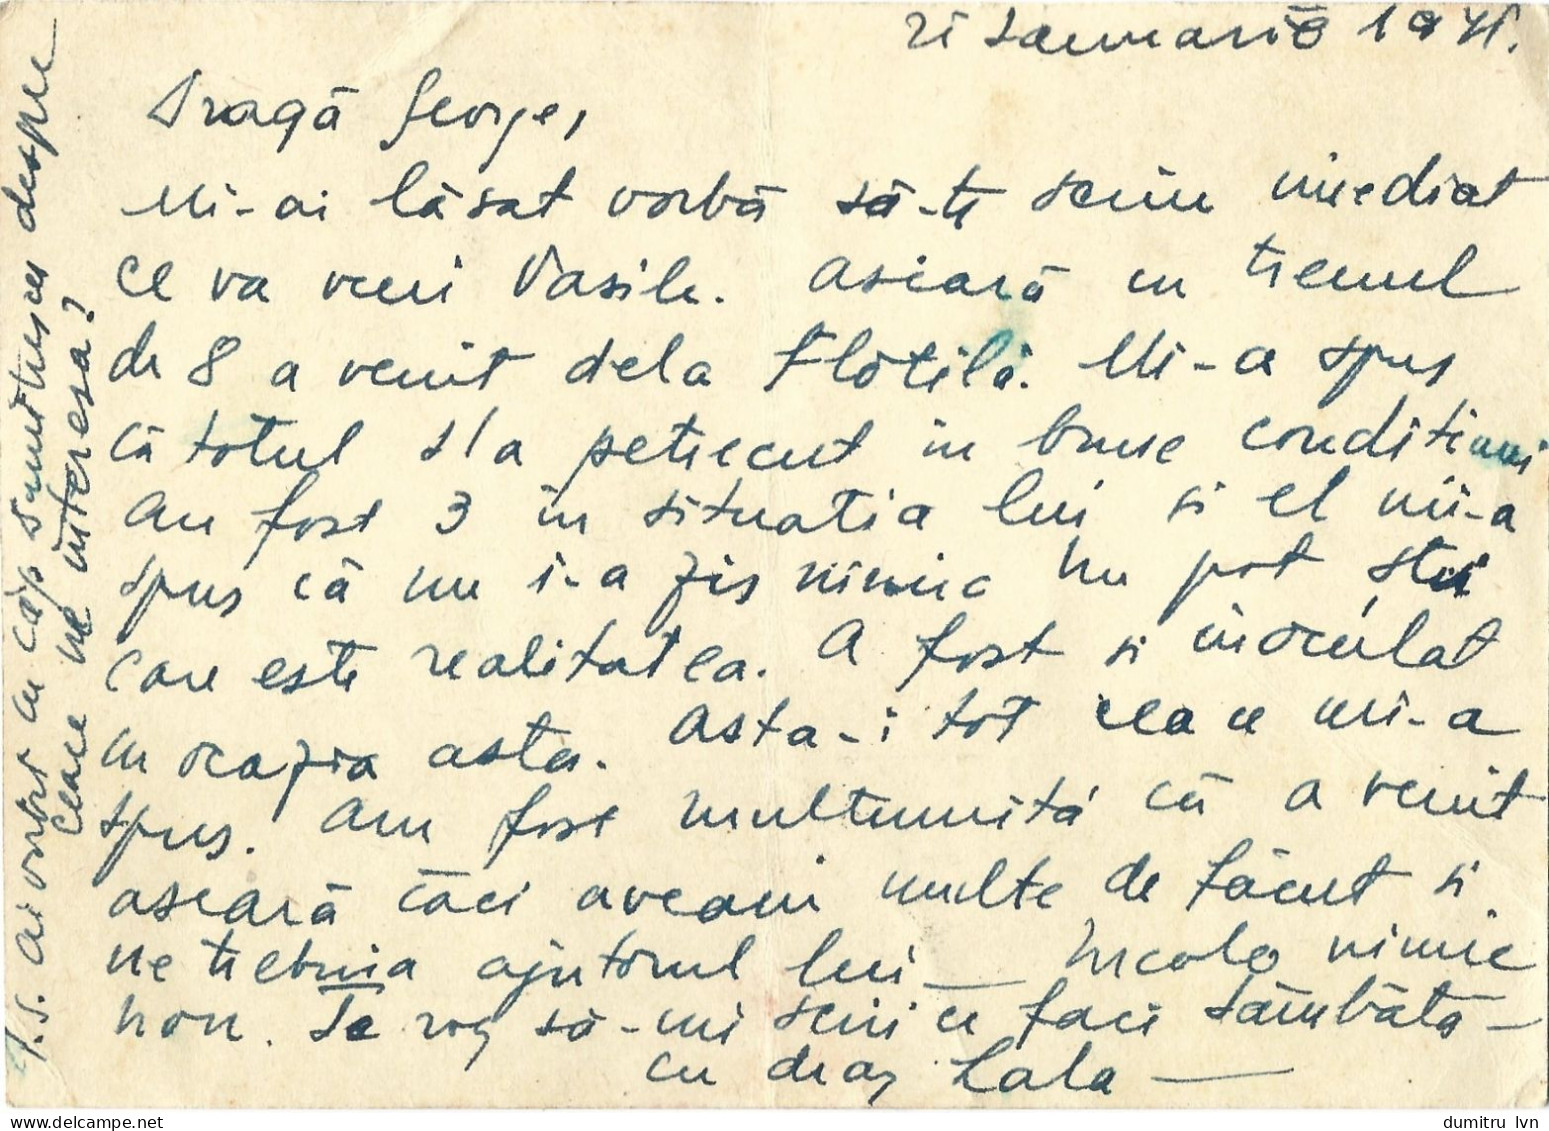 21 Ianuarie 1941.
Dragă George,
Mi-ai lăsat vorbă să-ti scriu imediat
ce va veni Vasile. Aseară cu trenul
de 8 a venit dela Flotilă. Mi-a spus
că totul s'a petrecut in bune conditiuni
Au fost 3 in situatia lui si el mi-a
spus că nu i-a zis nimic Nu pot stii
care este realitatea. A fost si inoculat
cu ocazia asta. Asta-i tot ceea ce mi-a
spus. Am fost multumită că a venit
aseară căci aveam multe de făcut si
ne trebuia ajutorul lui — Incolo nimic
nou. Te rog să-mi scrii ce faci Sâmbăta —
cu drag Lala —
P.S. Ai vorbit cu căp Smultescu despre
ceace ne interesa?
dumitru lvn